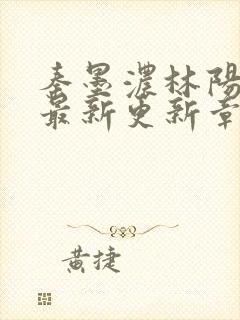 秦墨濃林陽
最新更新章
黄捷